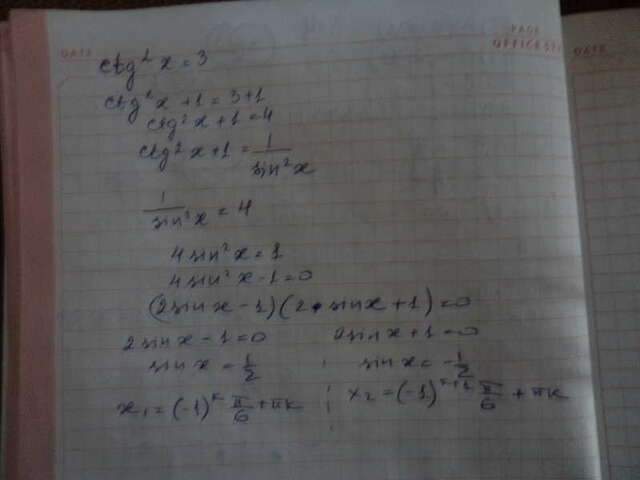 DATE
PAGE
OFFICEST
DATE
ctg² x = 3
ctg² x + 1 = 3 + 1
ctg² x + 1 = 4
ctg² x + 1 = 1/sin² x
1/sin² x = 4
4 sin² x = 1
4 sin² x - 1 = 0
(2 sin x - 1)(2 · sin x + 1) = 0
2 sin x - 1 = 0 2 sin x + 1 = 0
sin x = 1/2 ; sin x = -1/2
x₁ = (-1)ᵏ π/6 + πk ; x₂ = (-1)ᵏ⁺¹ π/6 + πk